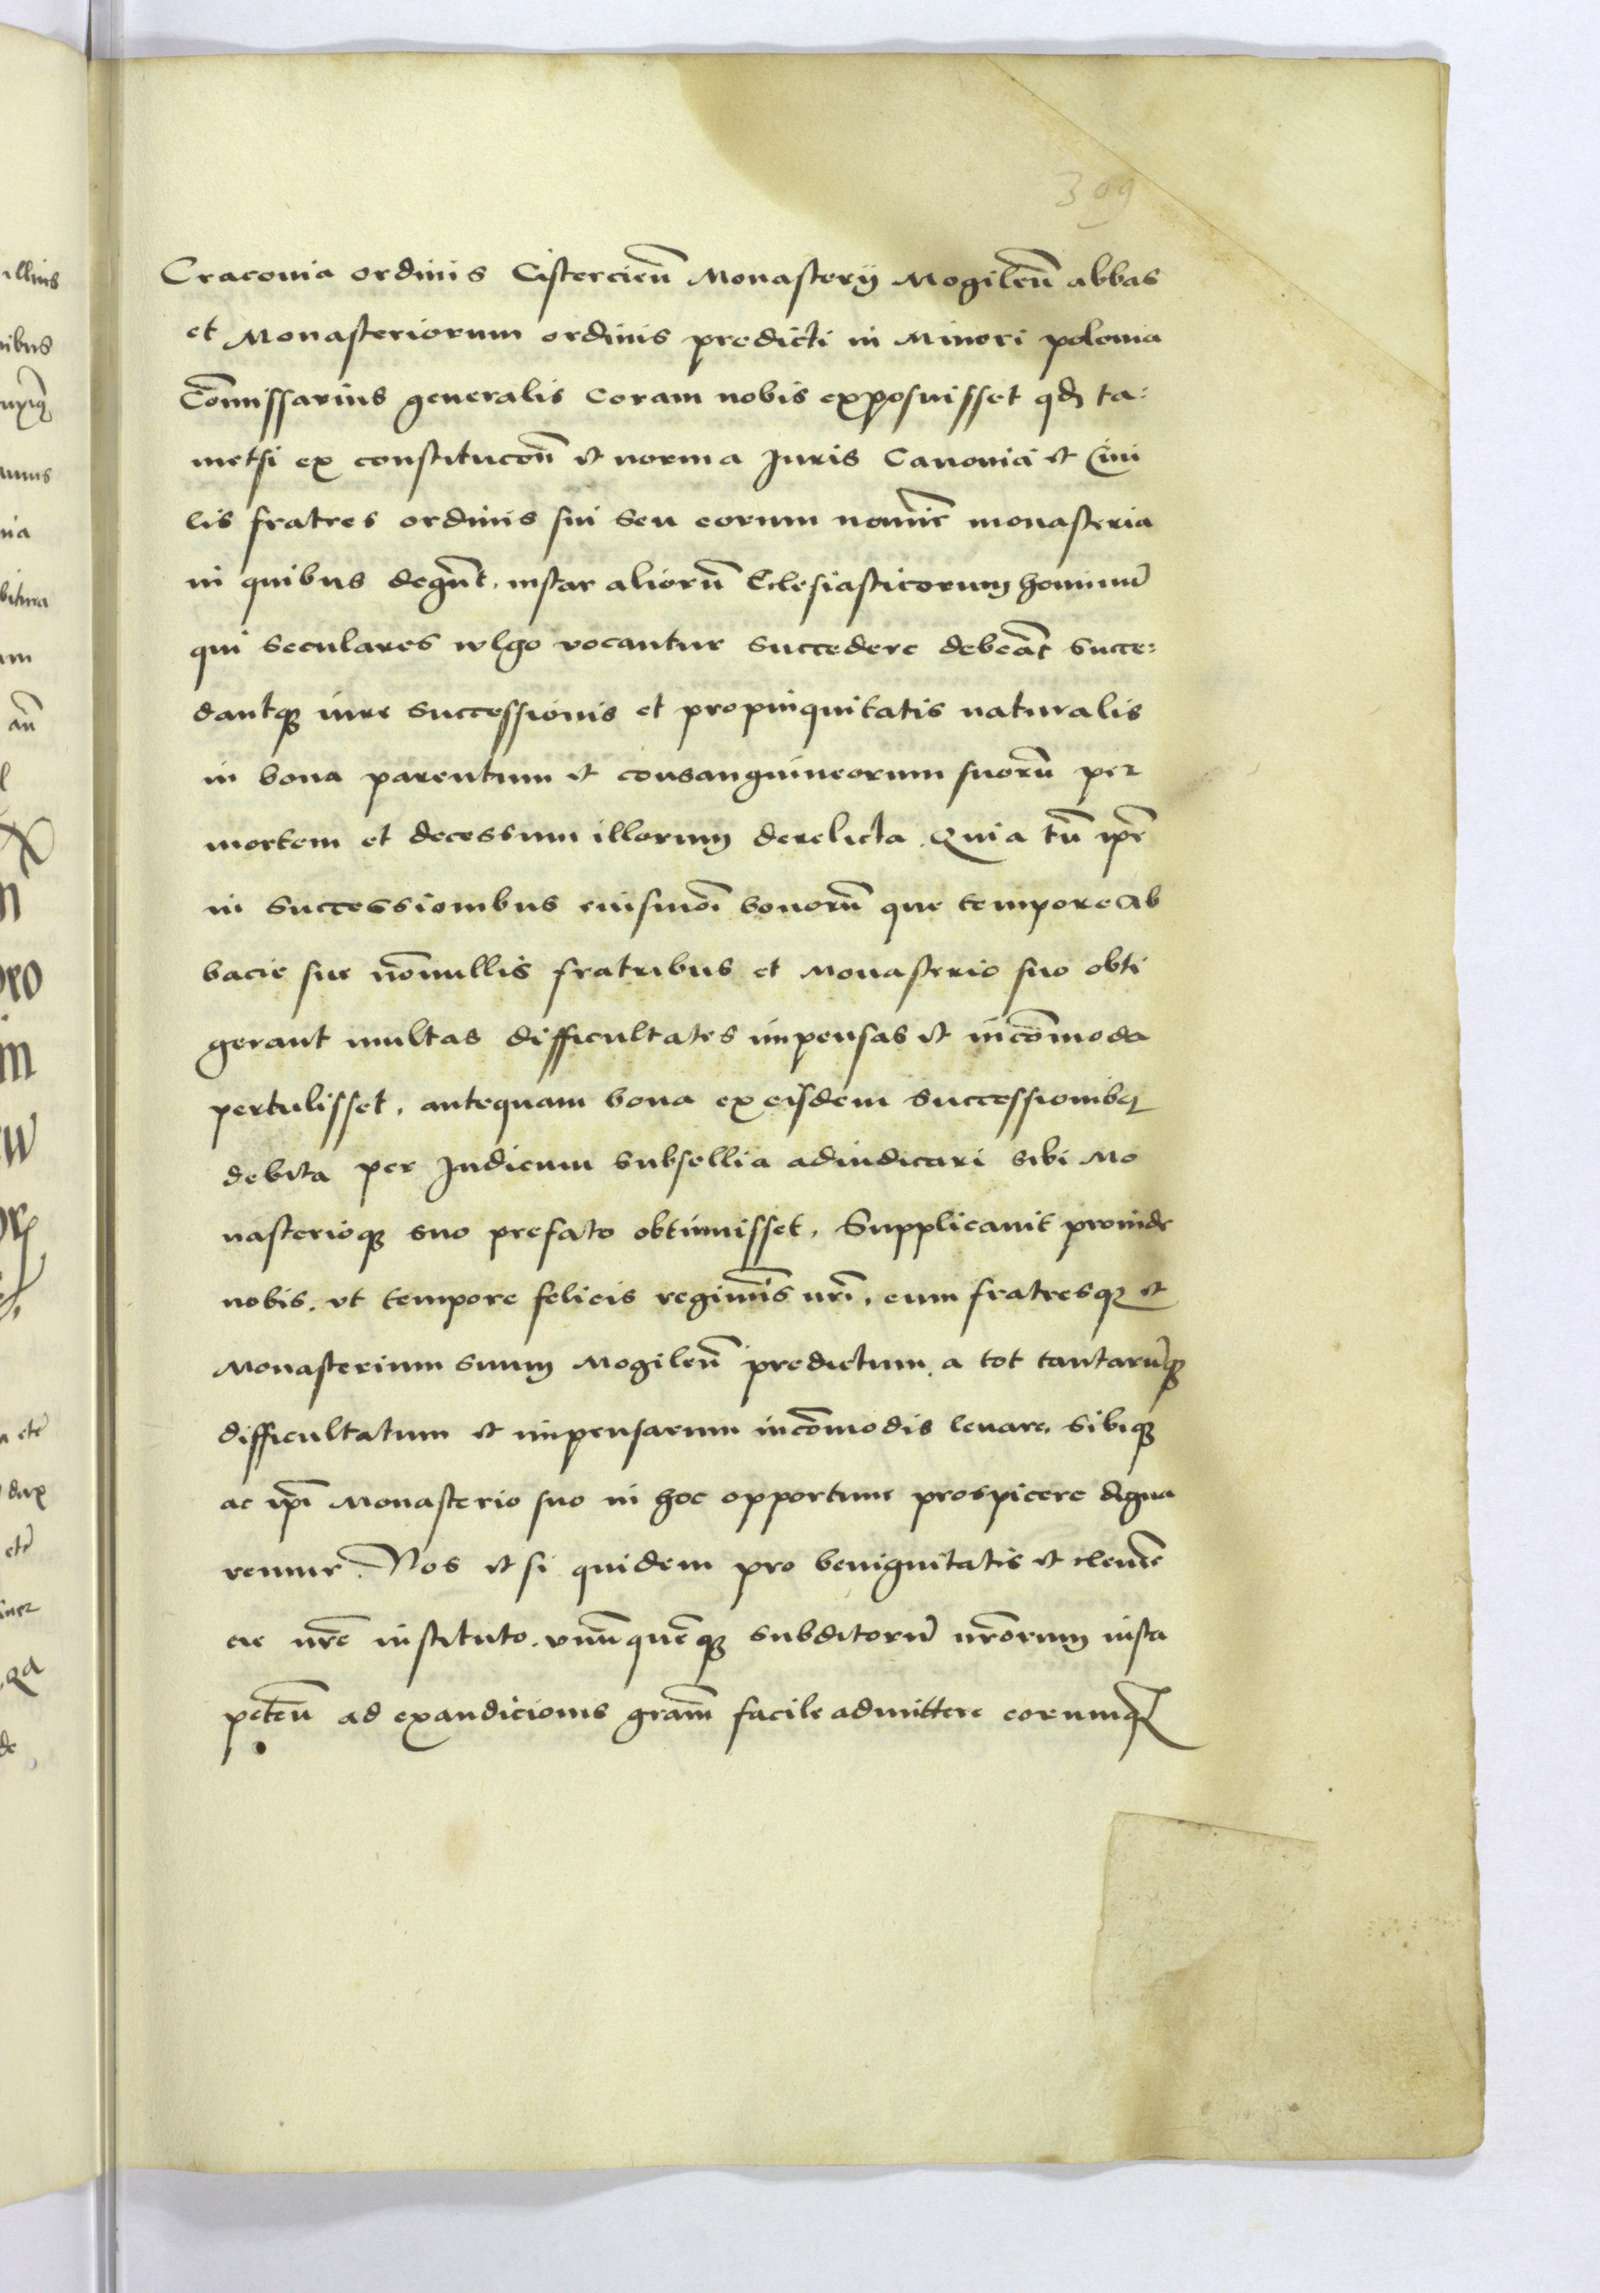 399
Craconia ordinis Cistercieñ Monasterij Mogileñ abbas
et Monasteriorum ordinis predicti in Minori polonia
Com̃issarius generalis coram nobis exposuisset qđ ta:
metsi ex constitucoñ et norma Juris Canonici et Ciui
lis fratres ordinis sui seu eorum noĩe monasteria
in quibus degũt, instar aliorũ Eclesiasticorum hominũ
qui seculares wlgo vocantur succedere debeãt succe:
dantq₃ iure successionis et propinquitatis naturalis
in bona parentum et consanguineorum suorũ per
mortem et decessum illorum derelicta. Quia tñ ip̃e
in successionibus eiusmoĩ bonorũ que tempore Ab
bacie sue nõnullis fratribus et Monasterio suo obti
gerant multas difficultates impensas et incõmoda
pertulisset, antequam bona ex eisdem successionibq₃
debita per Judicum subsellia adiudicari sibi Mo
nasterioq₃ suo prefato obtinuisset. Supplicauit proinde
nobis, vt tempore felicis regimĩs nrĩ, eum fratresq₃ et
Monasterium suum Mogileñ predictum, a tot tantarũq₃
difficultatum et impensarum incõmodis leuare, sibiq₃
ac ip̃i Monasterio suo in hoc opportune prospicere digna
remur. Nos et si quidem pro benignitatis et clemẽ
cie nrẽ instituto, vnũquẽq₃ subditorũ nrõrum iusta
peteñ ad exaudicionis grãm facile admittere eorumq₃